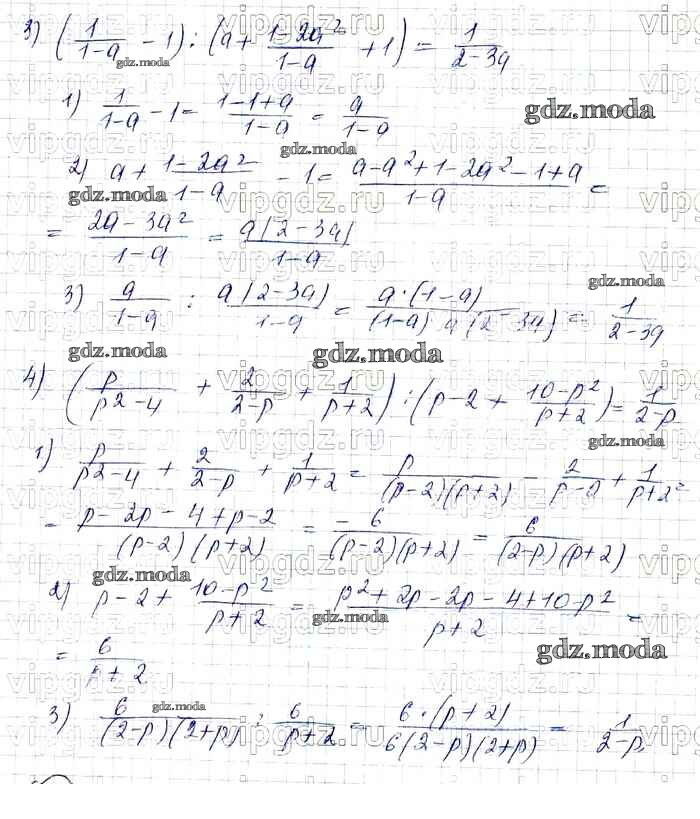 3) (1/(1-a) - 1) : (a + (1-2a²)/(1-a) + 1) = 1/(2-3a)
1) 1/(1-a) - 1 = (1-1+a)/(1-a) = a/(1-a)
2) a + (1-2a²)/(1-a) - 1 = (a-a²+1-2a²-1+a)/(1-a) =
= (2a-3a²)/(1-a) = a(2-3a)/(1-a)
3) a/(1-a) : a(2-3a)/(1-a) = a·(1-a)/((1-a) a(2-3a)) = 1/(2-3a)
4) (p/(p²-4) + 2/(2-p) + 1/(p+2)) : (p-2 + (10-p²)/(p+2)) = 1/(2-p)
1) p/(p²-4) + 2/(2-p) + 1/(p+2) = p/((p-2)(p+2)) - 2/(p-2) + 1/(p+2) =
= (p-2p-4+p-2)/((p-2)(p+2)) = -6/((p-2)(p+2)) = 6/((2-p)(p+2))
2) p-2+ (10-p²)/(p+2) = (p²+2p-2p-4+10-p²)/(p+2) =
= 6/(p+2)
3) 6/((2-p)(2+p)) : 6/(p+2) = 6·(p+2)/(6(2-p)(2+p)) = 1/(2-p)
gdz.moda
vipgdz.ru